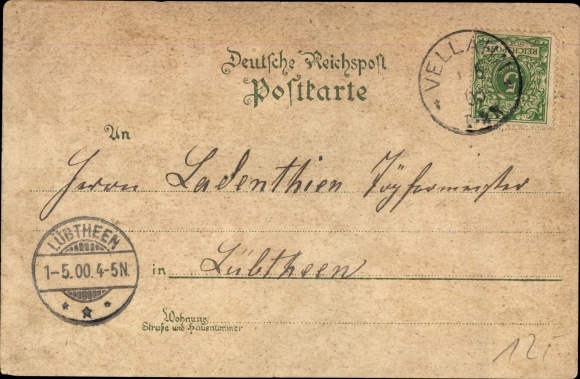 Deutsche Reichspost
Postkarte
REICHSPOST
5
An
Herrn Ladenthien Töpfermeister
LÜBTHEEN
1-5.00.4-5N.
in Lübtheen
Wohnung
Straße und Hausnummer